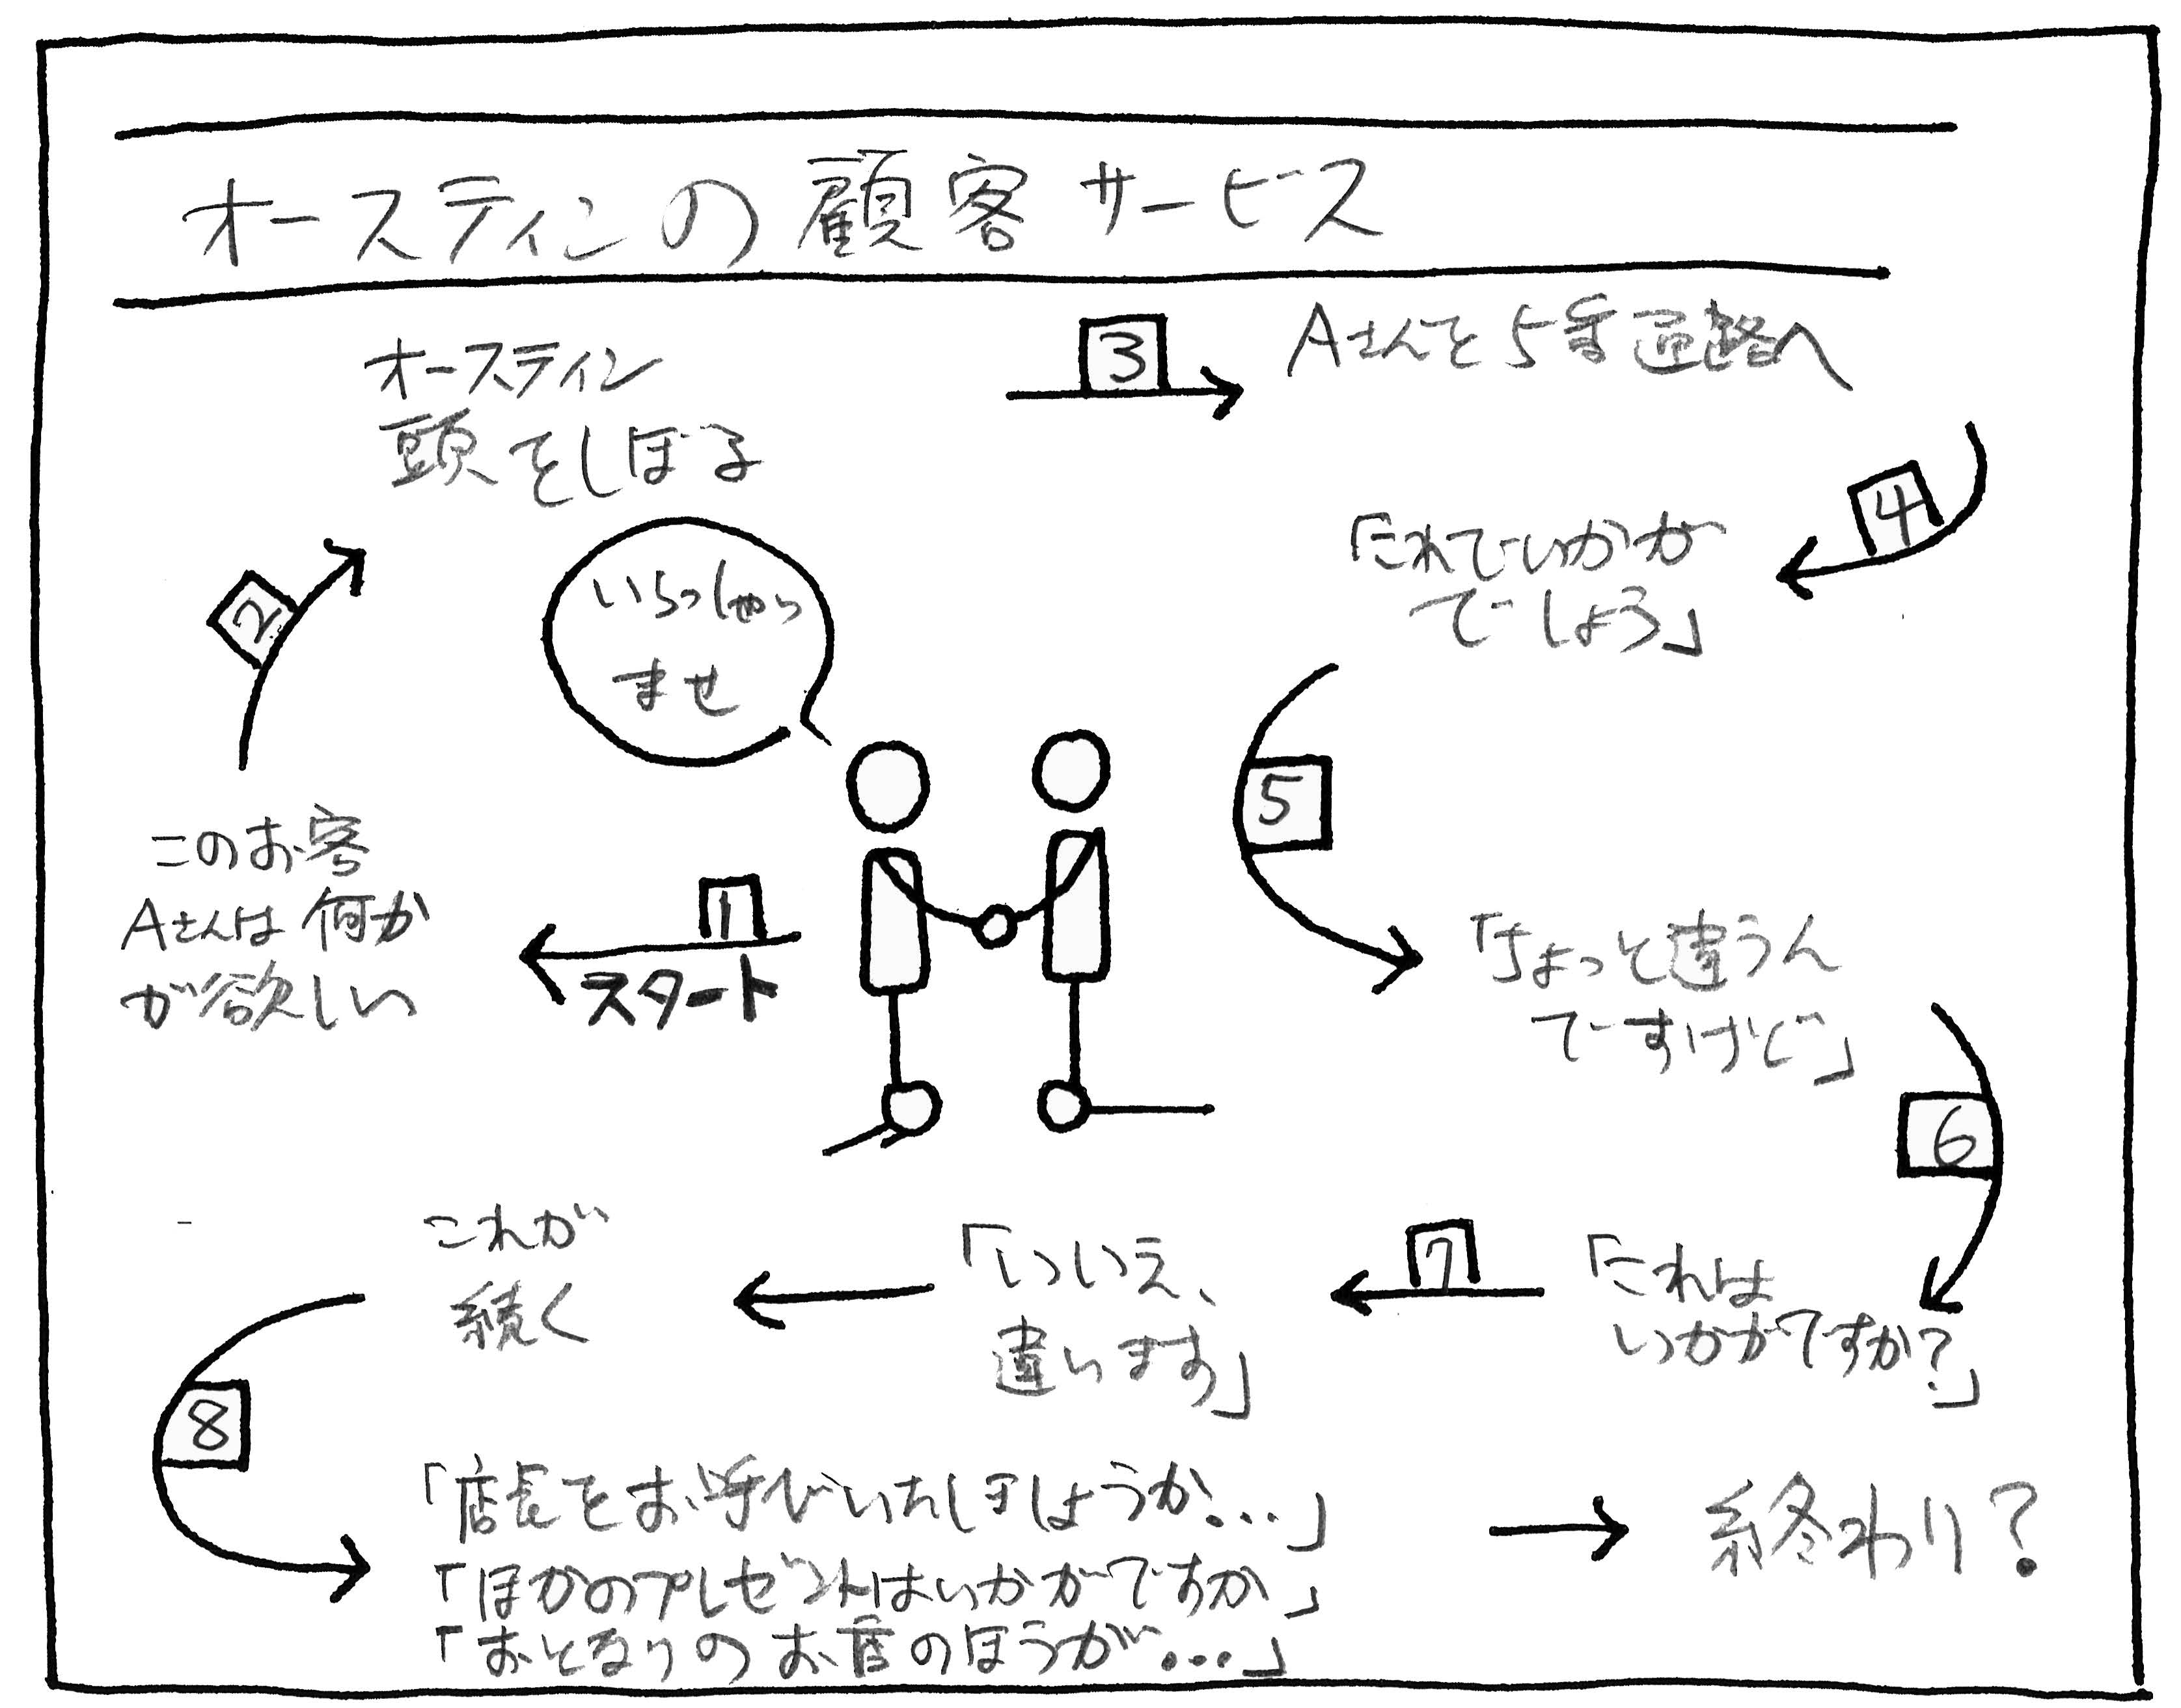 オースティンの顧客サービス
オースティン
頭をしぼる
3
Aさんと5番通路へ
4
「これでいかが
でしょう」
2
いらっしゃい
ませ
5
このお客
Aさんは何か
が欲しい
1
スタート
「ちょっと違うん
ですけど」
6
これが
続く
「いいえ、
違います」
7
「これは
いかがですか?」
8
「店長をお呼びいたしましょうか...」
「ほかのプレゼントはいかがですか」
「おとなりのお店のほうが...」
終わり?